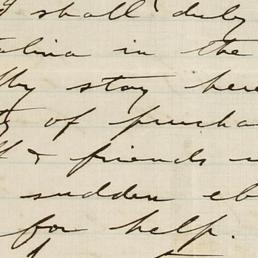 I shall duly
in the
My stay here
of purcha
& friends
sudden eb
for help.